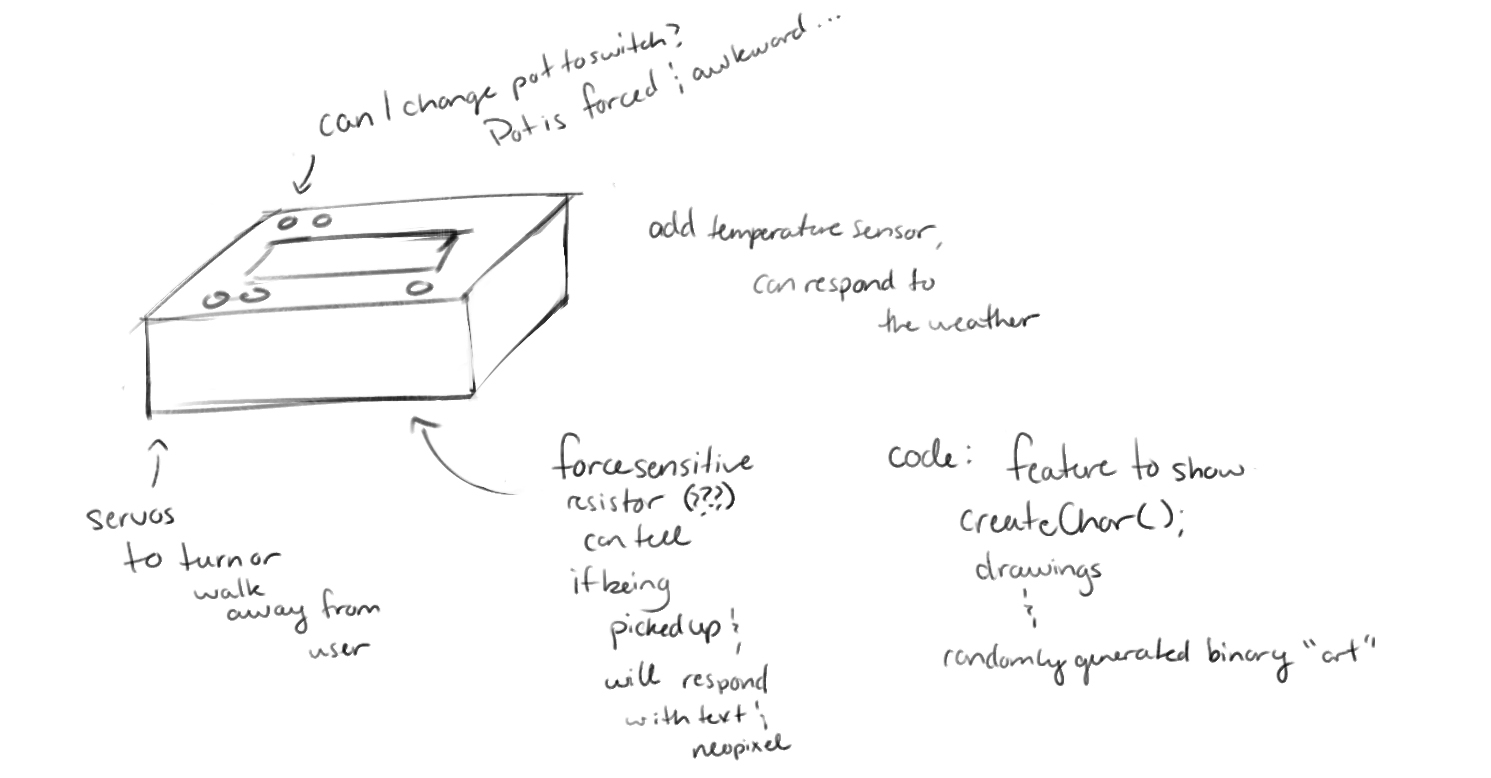 can I change pot to switch?
Pot is forced & awkward...
add temperature sensor,
can respond to
the weather
servos
to turn or
walk
away from
user
force sensitive
resistor (???)
can tell
if being
picked up &
will respond
with text &
neopixel
code: feature to show
createChar();
drawings
&
randomly generated binary "art"